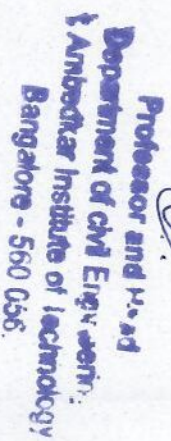 Professor and Head
Department of Civil Engineering
t Ambedkar Institute of Technology
Bangalore - 560 056.